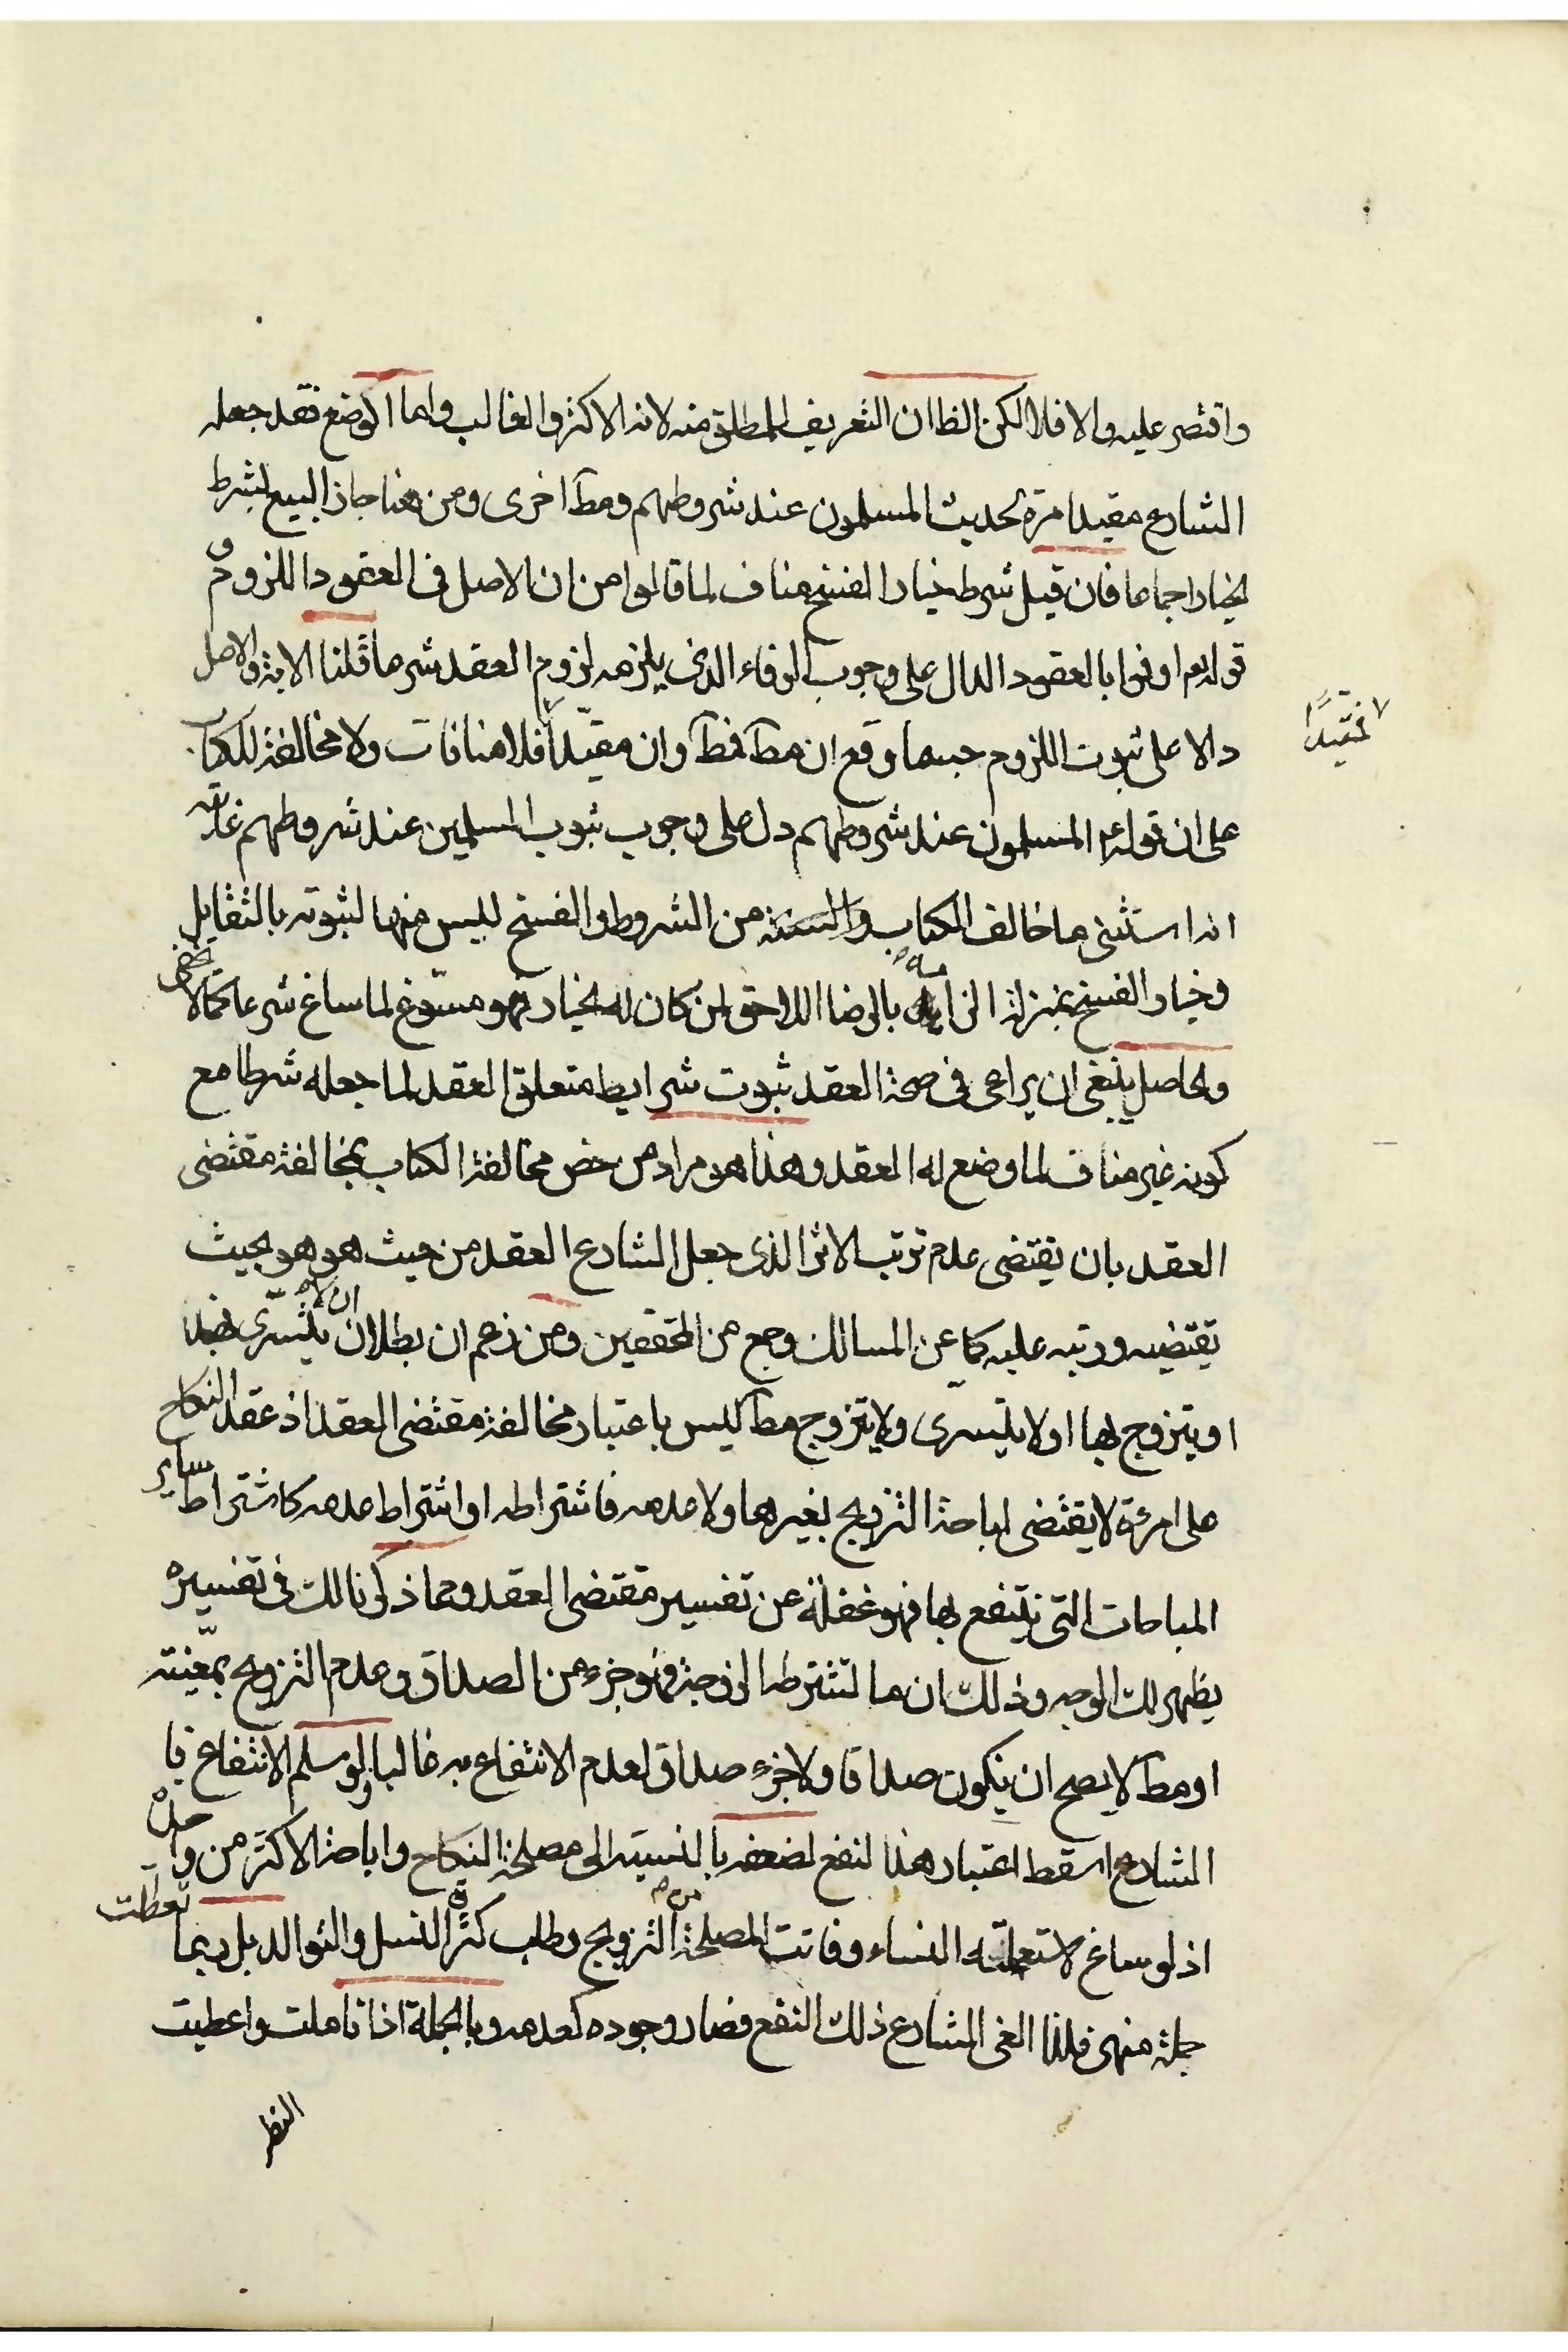 واقتصر عليه والا فلا لكن الظا ان التعريف للمطلق منه لانه الاكثر والغالب واما الوضع فقد جعله
الشارع مقيدا مرة لحديث المسلمون عند شروطهم ومط اخرى ومن هنا جاز البيع بشرط
الخيار اجماعا فان قيل شرط خيار الفسخ مناف لما قالوا من ان الاصل في العقود اللزوم و
قوله تعم اوفوا بالعقود الدال على وجوب الوفاء الذي يلزمه لزوم العقد شرعا قلنا الاية والاصل
دالا على ثبوت اللزوم حسبما وقع ان مط فمط وان مقيدا فلا منافات ولا مخالفة للكتاب
فمقيدا
على ان قوله ع المسلمون عند شروطهم دل على وجوب ثبوت المسلمين عند شروطهم غايته
انه استثنى ما خالف الكتاب والسنة من الشروط والفسخ ليس منها لثبوته بالتقايل
وخيار الفسخ بمنزلة الزامه بالرضا اللاحق لمن كان له الخيار فهو مسوغ لما ساغ شرعا كما لا يخفى
والحاصل ينبغي ان يراعى في صحة العقد ثبوت شرايط متعلق العقد لما جعله شرطا مع
كونه غير مناف لما وضع له العقد وهذا هو مراد من خص مخالفة الكتاب بمخالفة مقتضى
العقد بان يقتضي عدم ترتب الاثر الذي جعل الشارع العقد من حيث هو هو بحيث
تقتضيه ورتبه عليه كما عن المسالك وجمع من المحققين ومن زعم ان بطلان ان لا يتسرى
او يتزوج بها او لا يتسرى ولا يتزوج مط ليس باعتبار مخالفة مقتضى العقد اذ عقد النكاح
على امرءة لا يقتضي اباحة التزويج بغيرها ولا عدمه فاشتراطه او اشتراط عدمه كاشتراط ساير
المباحات التي ينتفع بها فهو غفلة عن تفسير مقتضى العقد ومما ذكرنا لك في تفسيره
يظهر لك الوجه وذلك ان ما تشترطه الزوجة فهو جزء من الصداق وعدم التزويج بمعينة
او مط لا يصح ان يكون صداقا ولا جزء صداق لعدم الانتفاع به غالبا ولو سلم الانتفاع فا
لشارع اسقط اعتبار هذا النفع لضعفه بالنسبة الى مصلحة النكاح واباحة الاكثر من واحدة
اذ لو ساغ لاستعملته النساء وفاتت المصلحة من التزويج وطلب كثرة النسل والتوالد بل ربما تعطلت
جملة منهن فلذا الغى الشارع ذلك النفع فصار وجوده كعدمه وبالجملة اذا تاملت واعطيت
النظر